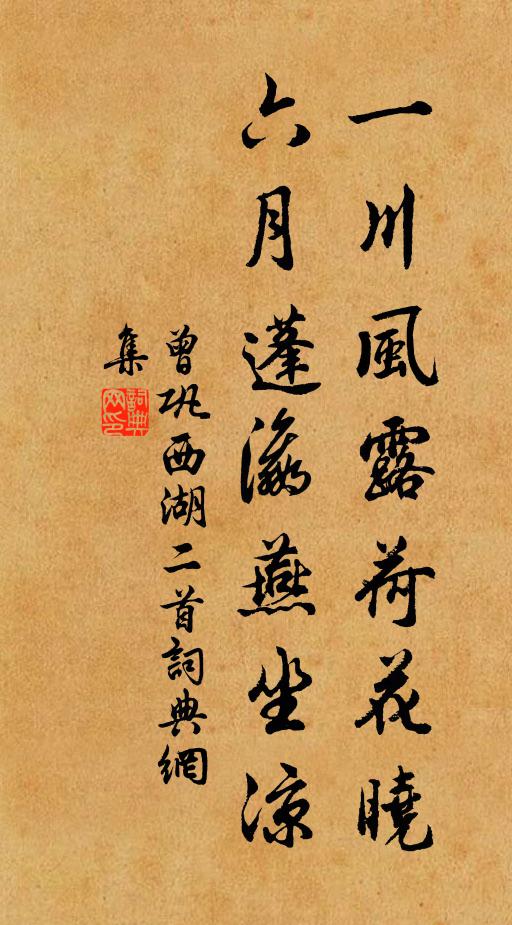 一川風露荷花曉
六月蓬瀛燕坐涼
曾巩西湖二首詞典網
集
詞典網印